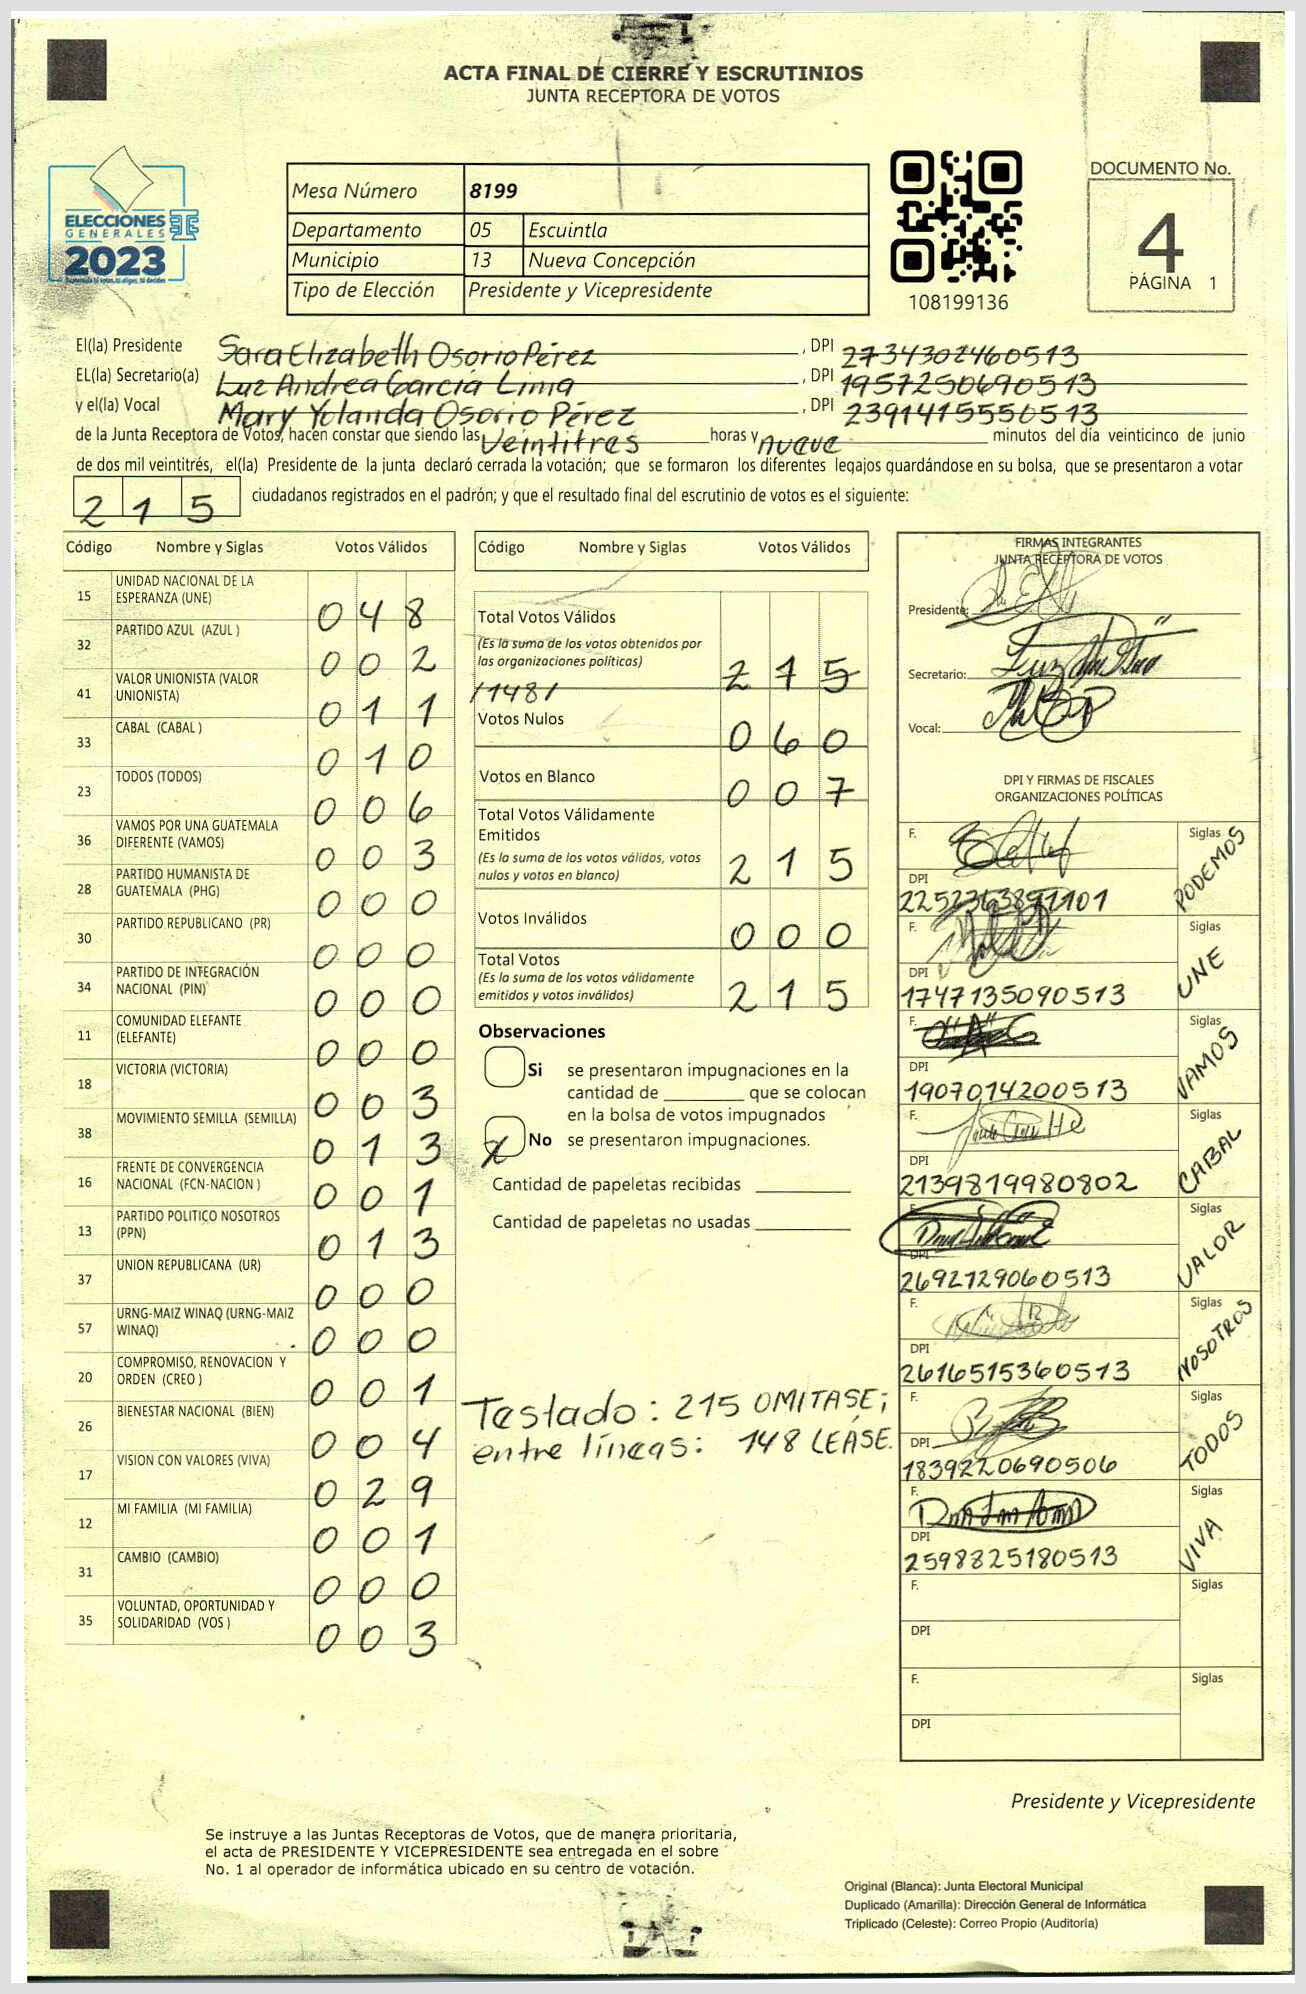 ACTA FINAL DE CIERRE Y ESCRUTINIOS
JUNTA RECEPTORA DE VOTOS
ELECCIONES
GENERALES
2023
Mesa Número 8199
Departamento 05 Escuintla
Municipio 13 Nueva Concepción
Tipo de Elección Presidente y Vicepresidente
108199136
DOCUMENTO No.
4
PÁGINA 1
El(la) Presidente Sara Elizabeth Osorio Pérez, DPI 2734302460513
EL(la) Secretario(a) Luz Andrea García Lima, DPI 1957250690513
y el(la) Vocal Mary Yolanda Osorio Pérez, DPI 2391415550513
de la Junta Receptora de Votos, hacen constar que siendo las Veintitres horas y nueve minutos del día veinticinco de junio
de dos mil veintitrés, el(la) Presidente de la junta declaró cerrada la votación; que se formaron los diferentes legajos guardándose en su bolsa, que se presentaron a votar
215 ciudadanos registrados en el padrón; y que el resultado final del escrutinio de votos es el siguiente:
Código Nombre y Siglas Votos Válidos
15 UNIDAD NACIONAL DE LA
ESPERANZA (UNE) 048
32 PARTIDO AZUL (AZUL ) 002
41 VALOR UNIONISTA (VALOR
UNIONISTA) 011
33 CABAL (CABAL ) 010
23 TODOS (TODOS) 006
36 VAMOS POR UNA GUATEMALA
DIFERENTE (VAMOS) 003
28 PARTIDO HUMANISTA DE
GUATEMALA (PHG) 000
30 PARTIDO REPUBLICANO (PR) 000
34 PARTIDO DE INTEGRACIÓN
NACIONAL (PIN) 000
11 COMUNIDAD ELEFANTE
(ELEFANTE) 000
18 VICTORIA (VICTORIA) 003
38 MOVIMIENTO SEMILLA (SEMILLA) 013
16 FRENTE DE CONVERGENCIA
NACIONAL (FCN-NACION ) 001
13 PARTIDO POLITICO NOSOTROS
(PPN) 013
37 UNION REPUBLICANA (UR) 000
57 URNG-MAIZ WINAQ (URNG-MAIZ
WINAQ) 000
20 COMPROMISO, RENOVACION Y
ORDEN (CREO ) 001
26 BIENESTAR NACIONAL (BIEN) 004
17 VISION CON VALORES (VIVA) 029
12 MI FAMILIA (MI FAMILIA) 001
31 CAMBIO (CAMBIO) 000
35 VOLUNTAD, OPORTUNIDAD Y
SOLIDARIDAD (VOS ) 003
Código Nombre y Siglas Votos Válidos
Total Votos Válidos
(Es la suma de los votos obtenidos por
las organizaciones políticas) 215
/148/
Votos Nulos 060
Votos en Blanco 007
Total Votos Válidamente
Emitidos
(Es la suma de los votos válidos, votos
nulos y votos en blanco) 215
Votos Inválidos 000
Total Votos
(Es la suma de los votos válidamente
emitidos y votos inválidos) 215
Observaciones
Si se presentaron impugnaciones en la
cantidad de ________ que se colocan
en la bolsa de votos impugnados
X No se presentaron impugnaciones.
Cantidad de papeletas recibidas
Cantidad de papeletas no usadas
Testado: 215 OMITASE;
entre líneas: 148 LEASE.
FIRMAS INTEGRANTES
JUNTA RECEPTORA DE VOTOS
Presidente:
Secretario:
Vocal:
DPI Y FIRMAS DE FISCALES
ORGANIZACIONES POLÍTICAS
F. Siglas PODEMOS
DPI
F. Siglas UNE
DPI 1747135090513
F. Siglas VAMOS
DPI 1907014200513
F. Siglas CABAL
DPI 2139819980802
F. Siglas VALOR
DPI 2692129060513
F. Siglas NOSOTROS
DPI 2616515360513
F. Siglas TODOS
DPI 1839220690506
F. Siglas VIVA
DPI 2598825180513
F. Siglas
DPI
F. Siglas
DPI
Presidente y Vicepresidente
Se instruye a las Juntas Receptoras de Votos, que de manera prioritaria,
el acta de PRESIDENTE Y VICEPRESIDENTE sea entregada en el sobre
No. 1 al operador de informática ubicado en su centro de votación.
Original (Blanca): Junta Electoral Municipal
Duplicado (Amarilla): Dirección General de Informática
Triplicado (Celeste): Correo Propio (Auditoría)